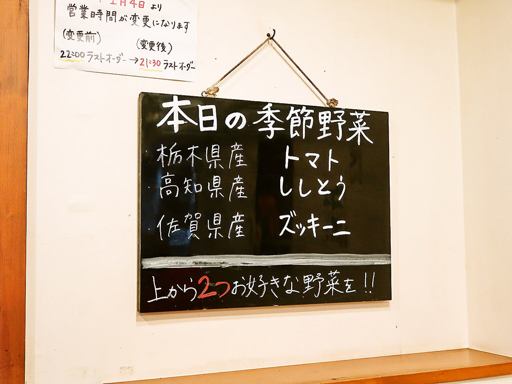 1月4日より
営業時間が変更になります
(変更前) (変更後)
22:00ラストオーダー→21:30ラストオーダー
本日の季節野菜
・栃木県産 トマト
・高知県産 ししとう
・佐賀県産 ズッキーニ
上から2つお好きな野菜を!!